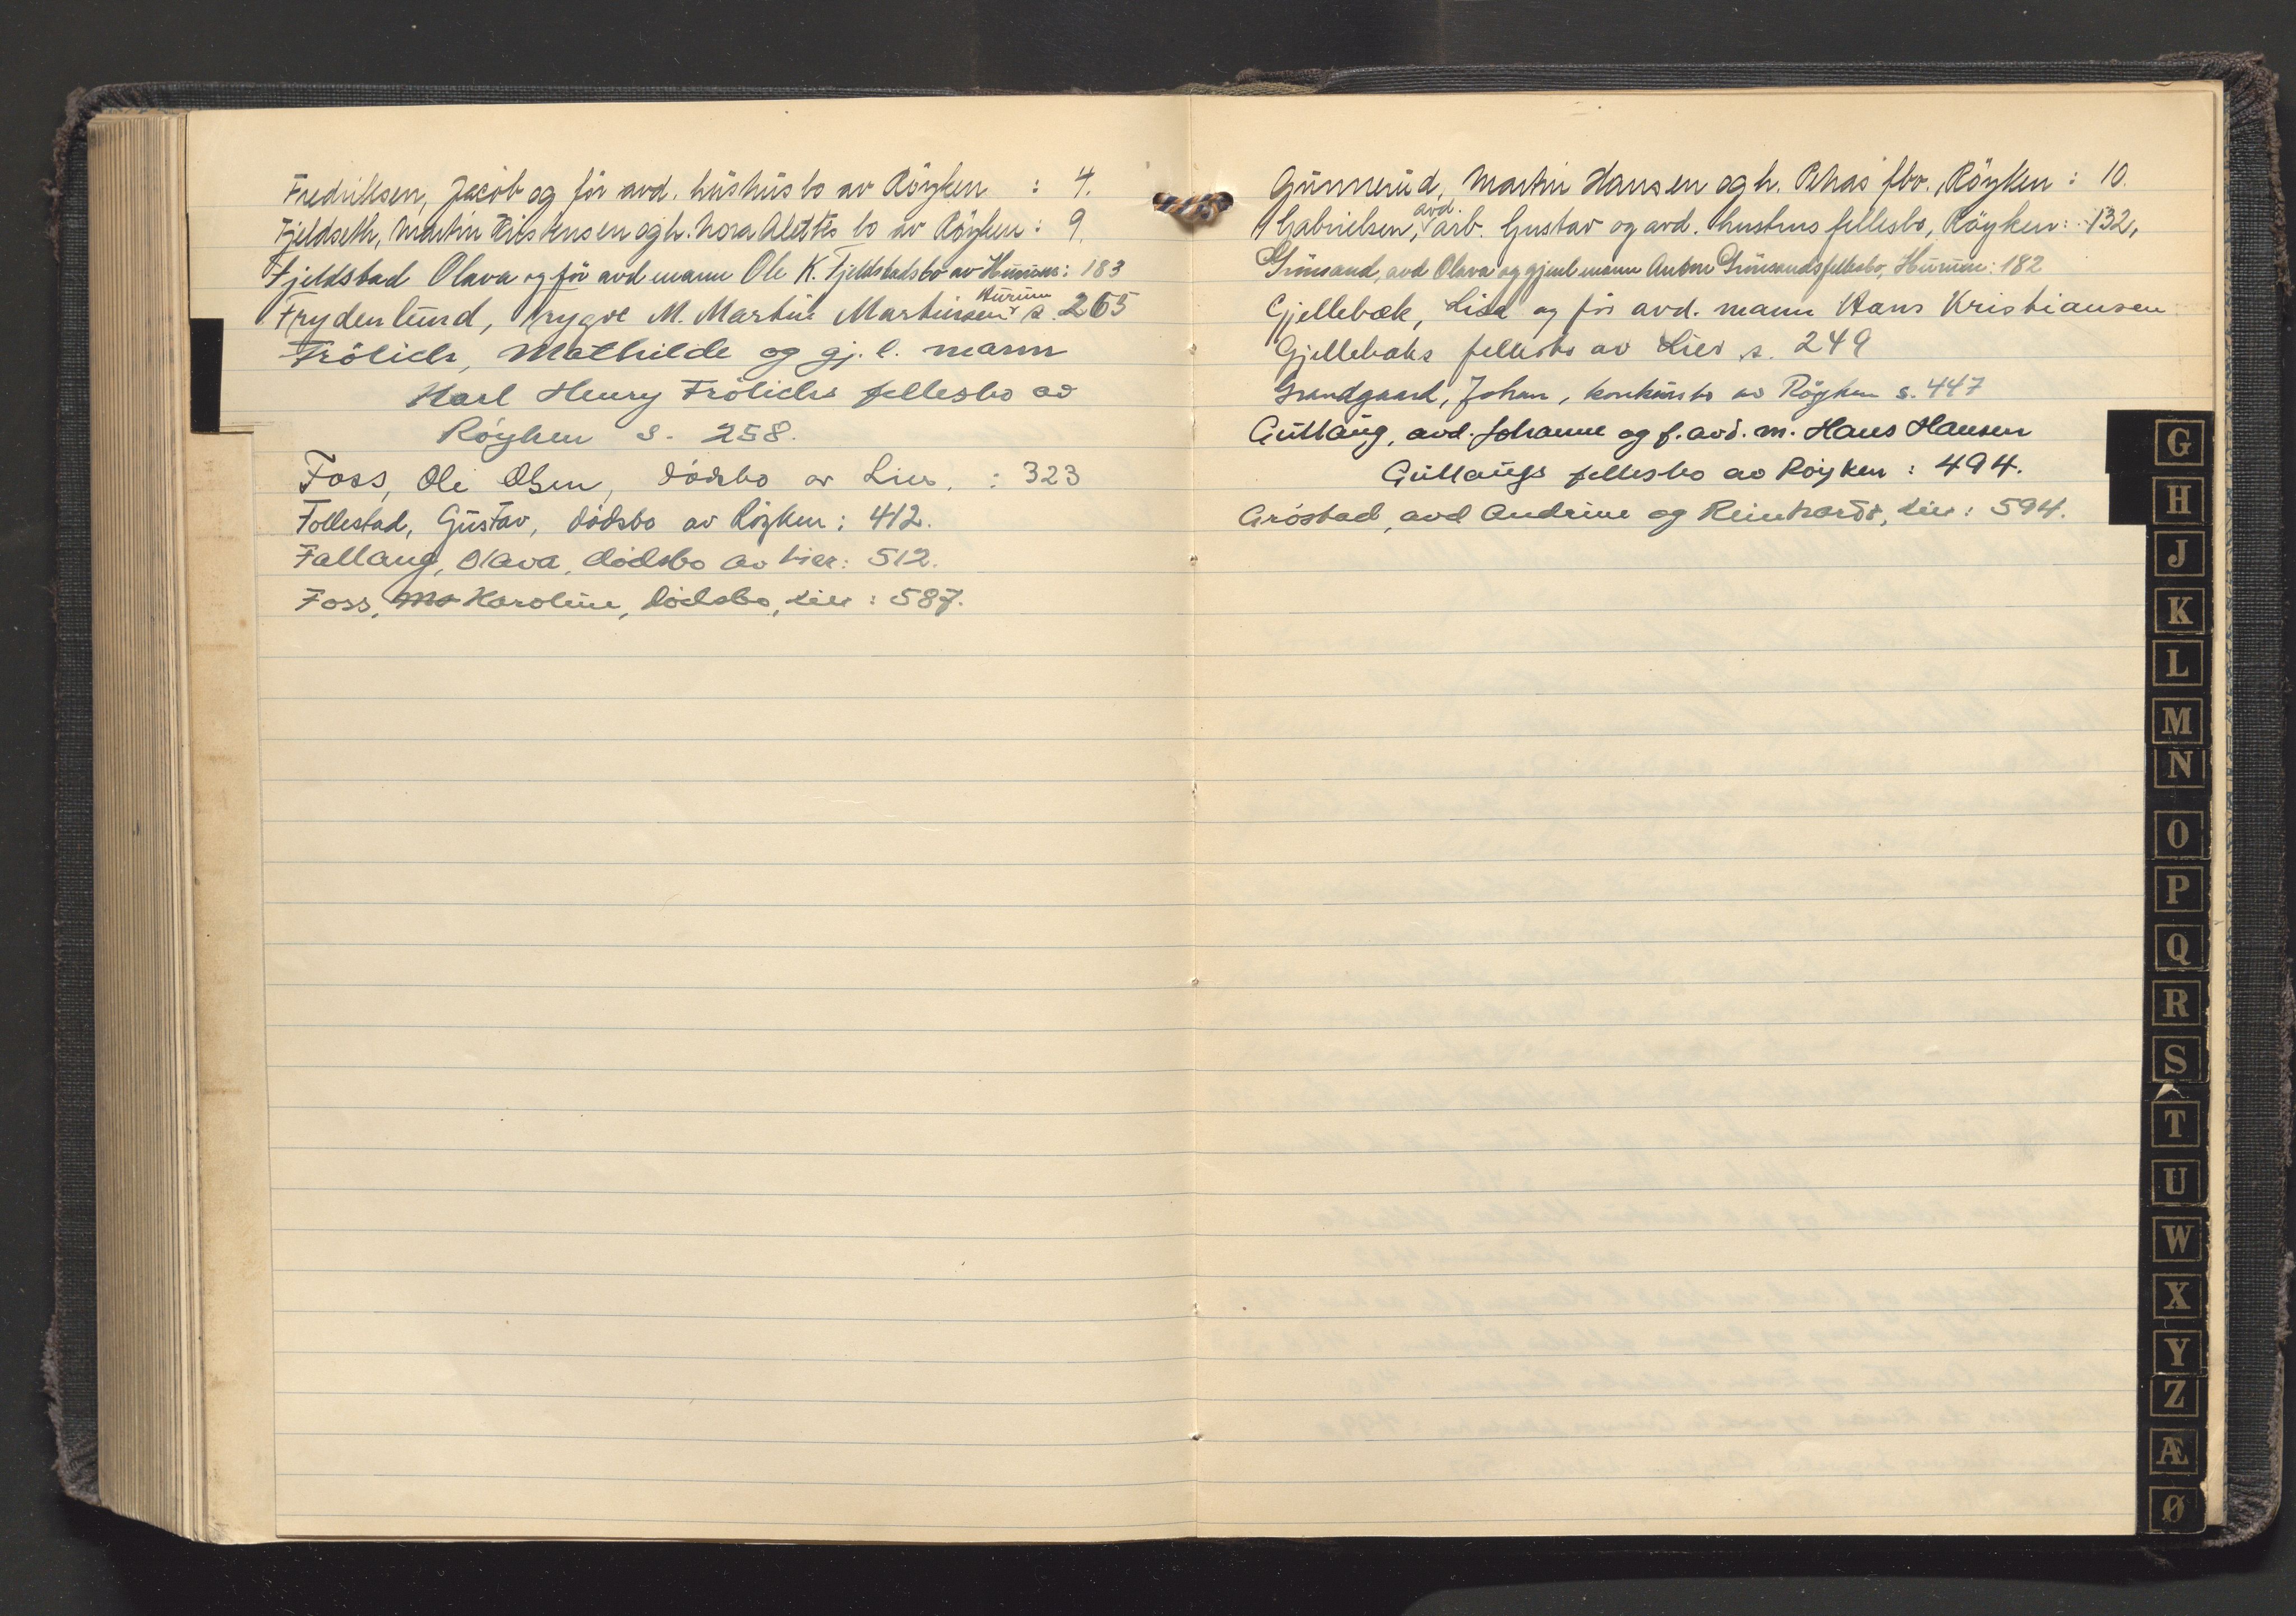 Fredriksen, Jacob og för avd. hustrus bo av Röyken : 4.
Fjeldseth, Martin Kristensen og h. Nora Alettes bo av Röyken : 9.
Fjeldstad Olava og för avd mann Ole K. Fjeldstads bo av Hurum : 183
Frydenlund, Trygve M. Martin Martinsen Hurum s. 265
Frölich, Mathilde og gj. l. mann
Karl Henry Frölichs fellesbo av
Røyken s. 258.
Foss, Ole Olsen, dödsbo av Lier. : 323
Follestad, Gustav, dödsbo av Röyken : 412.
Fallang, Olava, dödsbo av Lier : 512.
Foss, Karoline, dödsbo, Lier : 587.
Gunnerud, Martin Hansen og h. fbo., Röyken : 10.
Gabrielsen, avd. arb. Gustav og avd. hustrus fellesbo, Röyken : 132.
Grimsand, avd Olava og gjenl mann Anton Grimsands fellesbo, Hurum : 182
Gjellebæk, Lisa og för avd. mann Hans Kristiansen
Gjellebæks fellesbo av Lier s. 249
Grandgaard, Johan, konkursbo av Röyken s. 447
Gullaug, avd. Johanne og f. avd. m. Hans Hansen
Gullaugs fellesbo av Röyken : 494.
Gröstad, avd Andrine og Reinhardt, Lier : 594.
G
H
J
K
L
M
N
O
P
Q
R
S
T
U
W
X
Y
Z
Æ
Ø